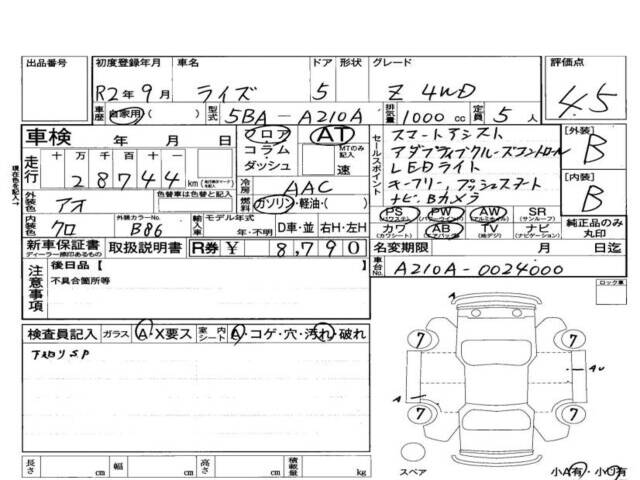 出品番号 初度登録年月 車名 ドア 形状 グレード 評価点
R2年9月 ライズ 5 Z 4WD 4.5
車歴 自家用( ) 型式 5BA-A210A 排気量 1000cc 定員 5人
車検 年 月 日 フロア コラム ダッシュ AT MTのみ記入 速
セールスポイント
スマートアシスト
アダプティブクルーズコントロール
LEDライト
キーフリー, プッシュスタート
ナビ, Bカメラ
[外装] B
[内装] B
現在色を記入→
走行 十万千百十 28744 km
外装色 アオ 色替車は色替と記入 冷房 AAC
燃料 ガソリン・軽油( )
内装色 クロ 外装カラーNo. B86 輸入車 モデル年式 年・不明 D車・並 右H・左H
PS (パワステ) PW (パワーウインド) AW (アルミホイル) SR (サンルーフ)
カワ (カワシート) AB (エアバッグ) TV (地デジ) ナビ (ナビゲーション)
純正品のみ丸印
新車保証書 ディーラー捺印あるもの 取扱説明書 R券 ¥ 8,790
名変期限 月 日迄
車台No. A210A-0024000
注意事項 後日品[ ]
不具合箇所等
ロック車
検査員記入 ガラス A・X要ス 室内シート A・コゲ・穴・汚れ・破れ
下廻りSP
A
7 7
A AU
7 7
スペア 小A有・小U有
長さ cm 幅 cm 高さ cm 積載量 kg